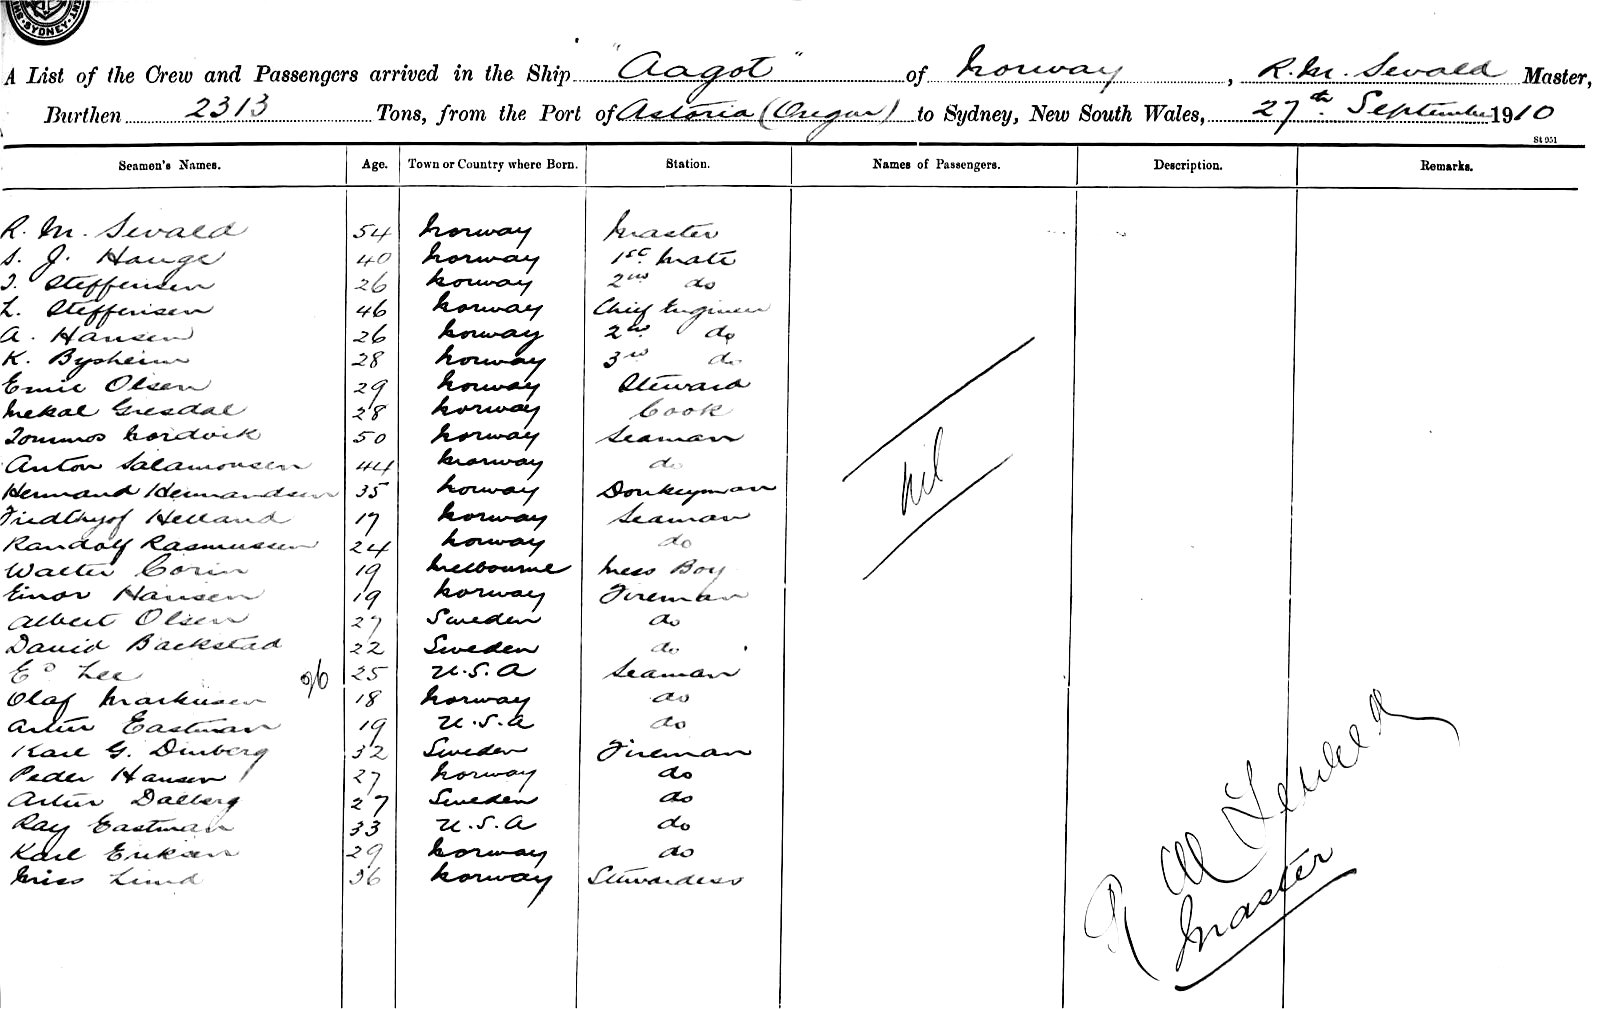 SYDNEY
A List of the Crew and Passengers arrived in the Ship "Aagot" of Norway, R. M. Sevald Master,
Burthen 2313 Tons, from the Port of Astoria (Oregon) to Sydney, New South Wales, 27th September 1910
St 951
Seamen's Names. Age. Town or Country where Born. Station. Names of Passengers. Description. Remarks.
R. M. Sevald 54 Norway Master
S. J. Hauge 40 Norway 1st Mate
T. Steffensen 26 Norway 2nd do
L. Steffensen 46 Norway Chief Engineer
A. Hansen 26 Norway 2nd do
K. Bysheim 28 Norway 3rd do
Emil Olsen 29 Norway Steward
Mekal Gresdal 28 Norway Cook
Tommos Nordvik 50 Norway Seaman
Anton Salamonsen 44 Norway do
Hermand Hermandsen 35 Norway Donkeyman
Nil
Fridthjof Helland 17 Norway Seaman
Randolf Rasmussen 24 Norway do
Walter Corin 19 Melbourne Mess Boy
Einor Hansen 19 Norway Fireman
Albert Olsen 27 Sweden do
David Backstad 22 Sweden do
Ed Lee 26 25 U.S.A Seaman
Olaf Markusen 18 Norway do
Artur Eastman 19 U.S.A do
Karl G. Dinberg 32 Sweden Fireman
Peder Hansen 27 Norway do
Artur Dalberg 27 Sweden do
Ray Eastman 33 U.S.A do
Karl Eriksen 29 Norway do
Miss Lund 36 Norway Stewardess
R M Sewald
Master